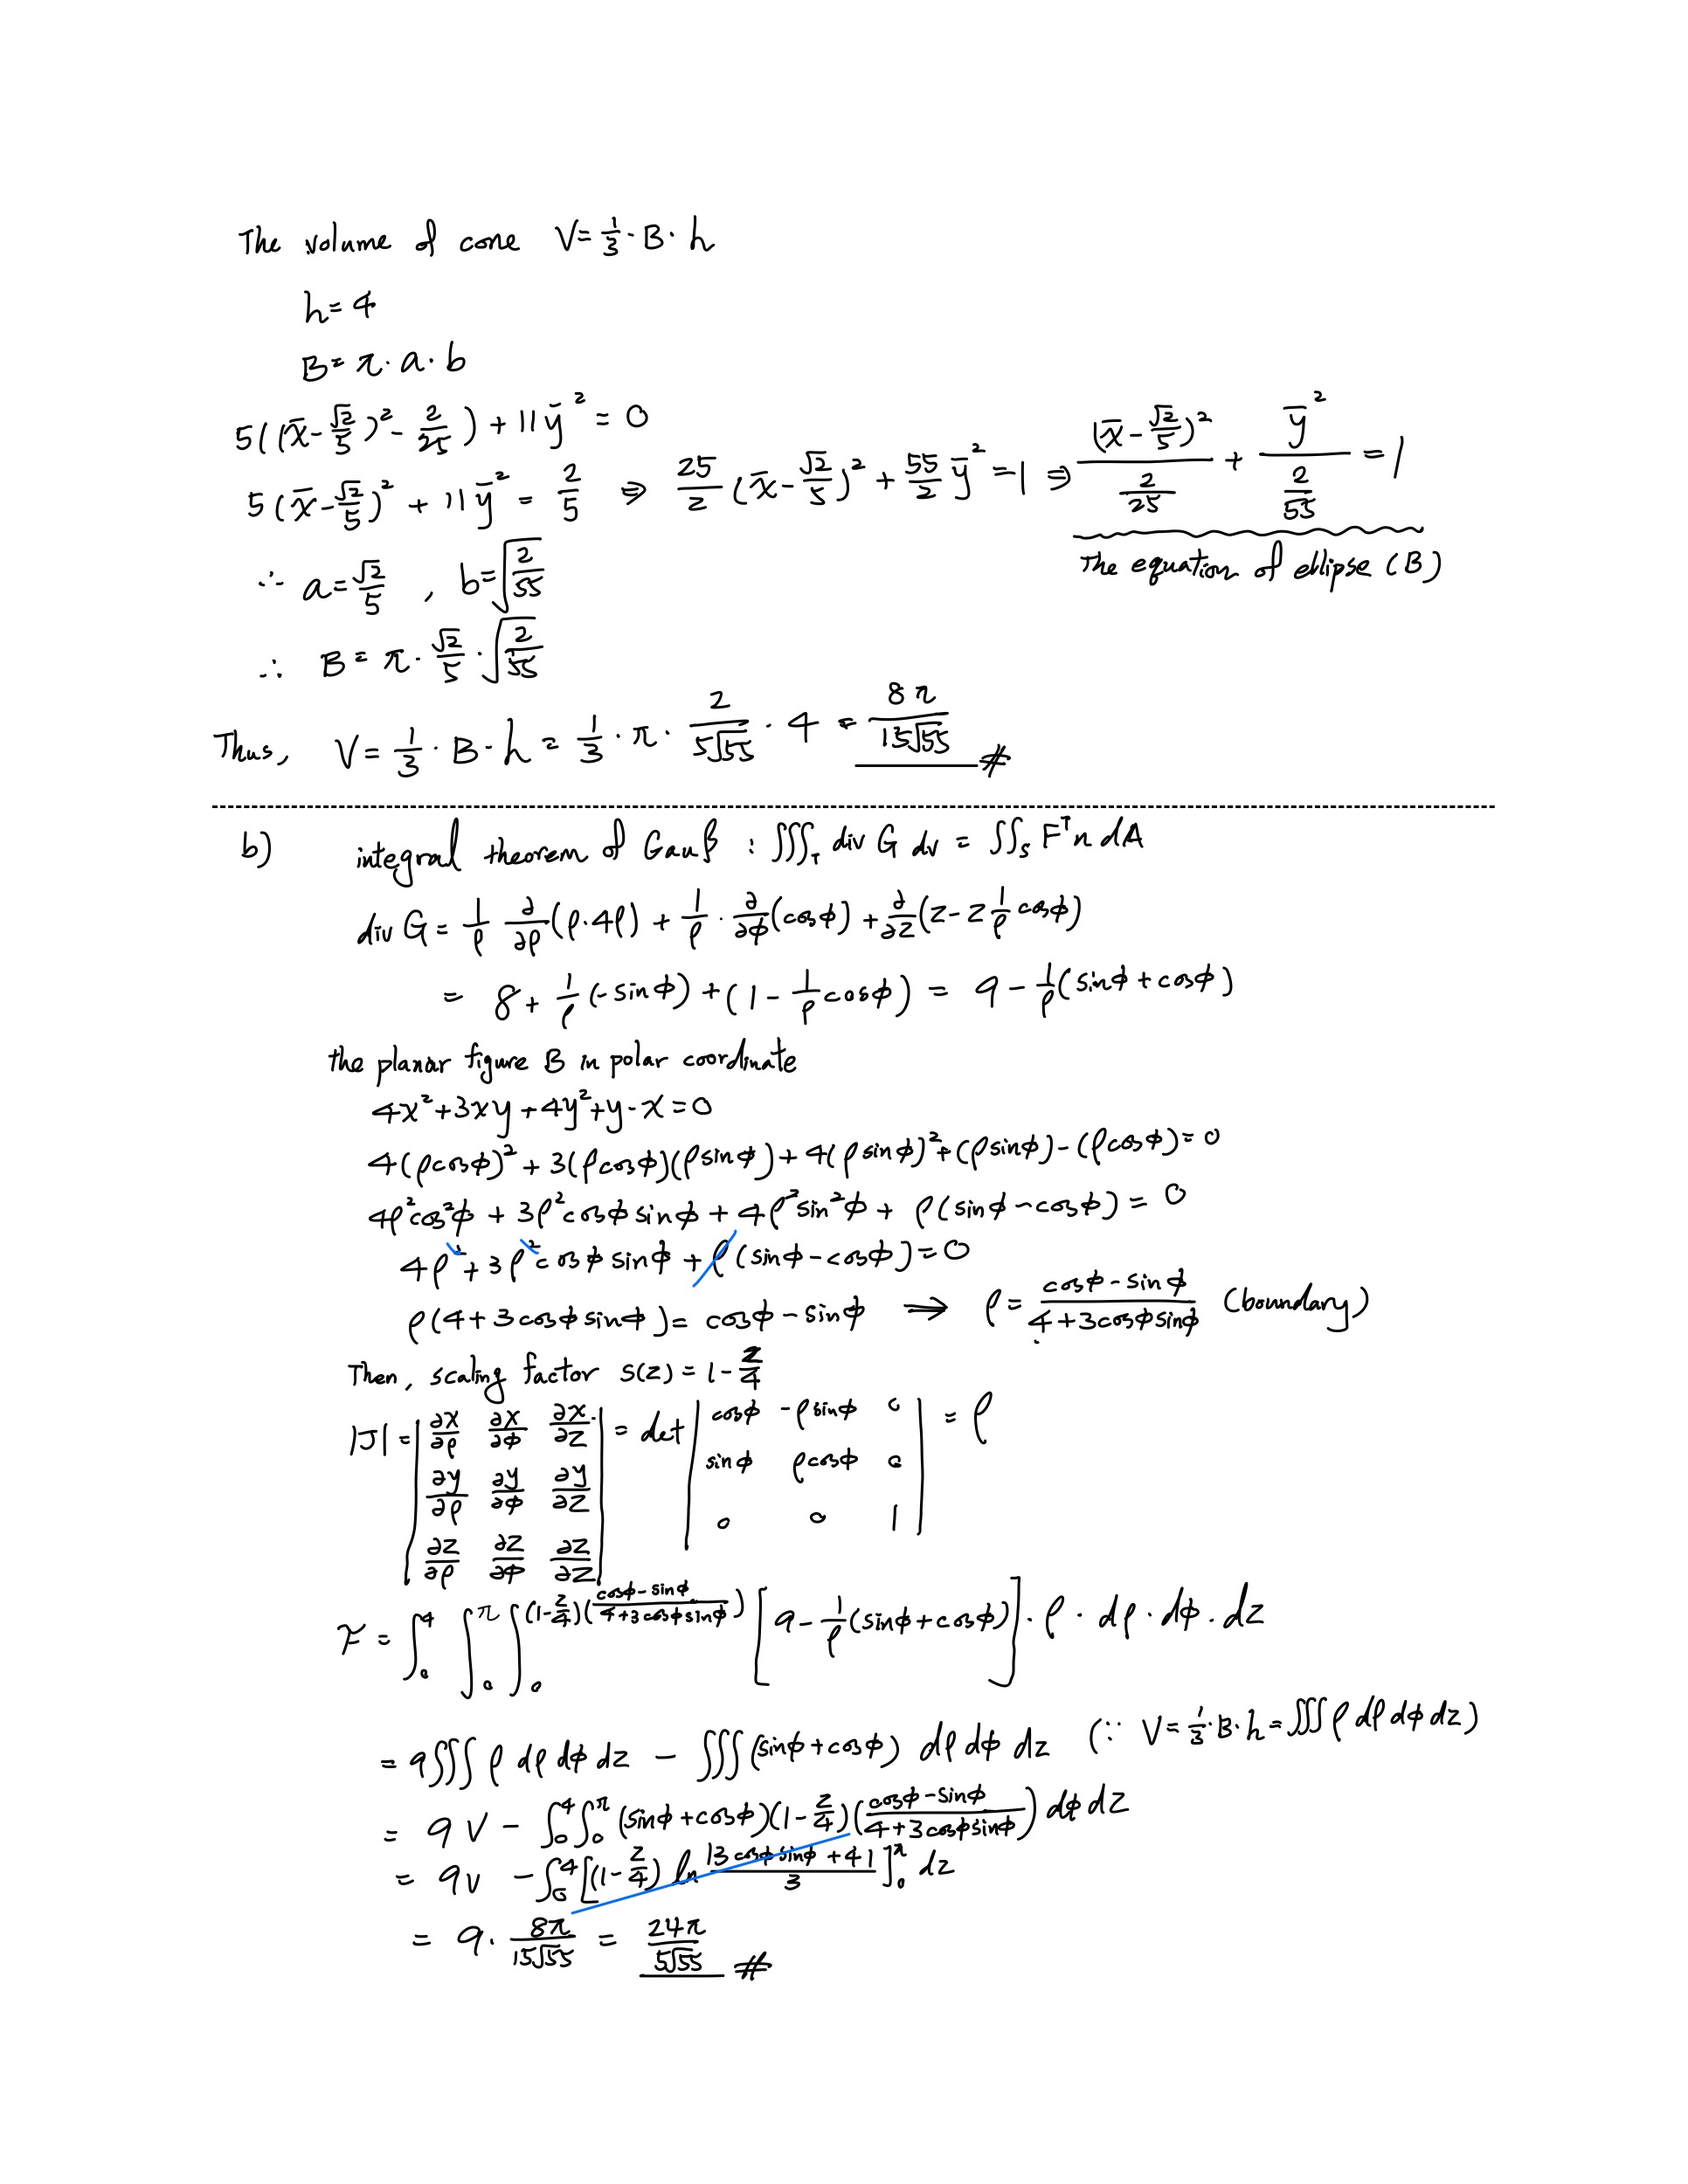 The volume of cone V = 1/3 · B · h
h = 4
B = π · a · b
5((x̄ - √2/5)² - 2/25) + 11ȳ² = 0
5(x̄ - √2/5)² + 11ȳ² = 2/5 ⇒ 25/2 (x̄ - √2/5)² + 55/2 ȳ² = 1 ⇒ (x̄ - √2/5)²/(2/25) + ȳ²/(2/55) = 1
The equation of ellipse (B)
∴ a = √2/5 , b = √(2/55)
∴ B = π · √2/5 · √(2/55)
Thus, V = 1/3 · B · h = 1/3 · π · 2/(5√55) · 4 = 8π/(15√55) #
b) integral theorem of Gauß : ∭_T div G dv = ∬_S Fᵀn dA
div G = 1/ρ ∂/∂ρ (ρ·4ρ) + 1/ρ · ∂/∂ϕ (cosϕ) + ∂/∂z (z - z 1/ρ cosϕ)
= 8 + 1/ρ (-sinϕ) + (1 - 1/ρ cosϕ) = 9 - 1/ρ (sinϕ + cosϕ)
the planar figure B in polar coordinate
4x² + 3xy + 4y² + y - x = 0
4(ρcosϕ)² + 3(ρcosϕ)(ρsinϕ) + 4(ρsinϕ)² + (ρsinϕ) - (ρcosϕ) = 0
4ρ²cos²ϕ + 3ρ²cosϕ sinϕ + 4ρ²sin²ϕ + ρ(sinϕ - cosϕ) = 0
4ρ² + 3ρ²cosϕ sinϕ + ρ(sinϕ - cosϕ) = 0
ρ(4 + 3cosϕ sinϕ) = cosϕ - sinϕ ⟹ ρ = (cosϕ - sinϕ)/(4 + 3cosϕ sinϕ) (boundary)
Then, scaling factor S(z) = 1 - z/4
|J| = | ∂x/∂ρ ∂x/∂ϕ ∂x/∂z | = det | cosϕ -ρsinϕ 0 | = ρ
∂y/∂ρ ∂y/∂ϕ ∂y/∂z sinϕ ρcosϕ 0
∂z/∂ρ ∂z/∂ϕ ∂z/∂z 0 0 1
F = ∫₀⁴ ∫₀^π ∫₀^((1-z/4)((cosϕ-sinϕ)/(4+3cosϕsinϕ))) [9 - 1/ρ (sinϕ + cosϕ)] · ρ · dρ · dϕ · dz
= 9∭ρ dρ dϕ dz - ∭(sinϕ + cosϕ) dρ dϕ dz (∵ V = 1/3 · B · h = ∭ρ dρ dϕ dz)
= 9V - ∫₀⁴∫₀^π (sinϕ + cosϕ)(1 - z/4)((cosϕ - sinϕ)/(4 + 3cosϕsinϕ)) dϕ dz
= 9V - ∫₀⁴[(1 - z/4) ln |3cosϕsinϕ + 4|/3]₀^π dz
= 9 · 8π/(15√55) = 24π/(5√55) #